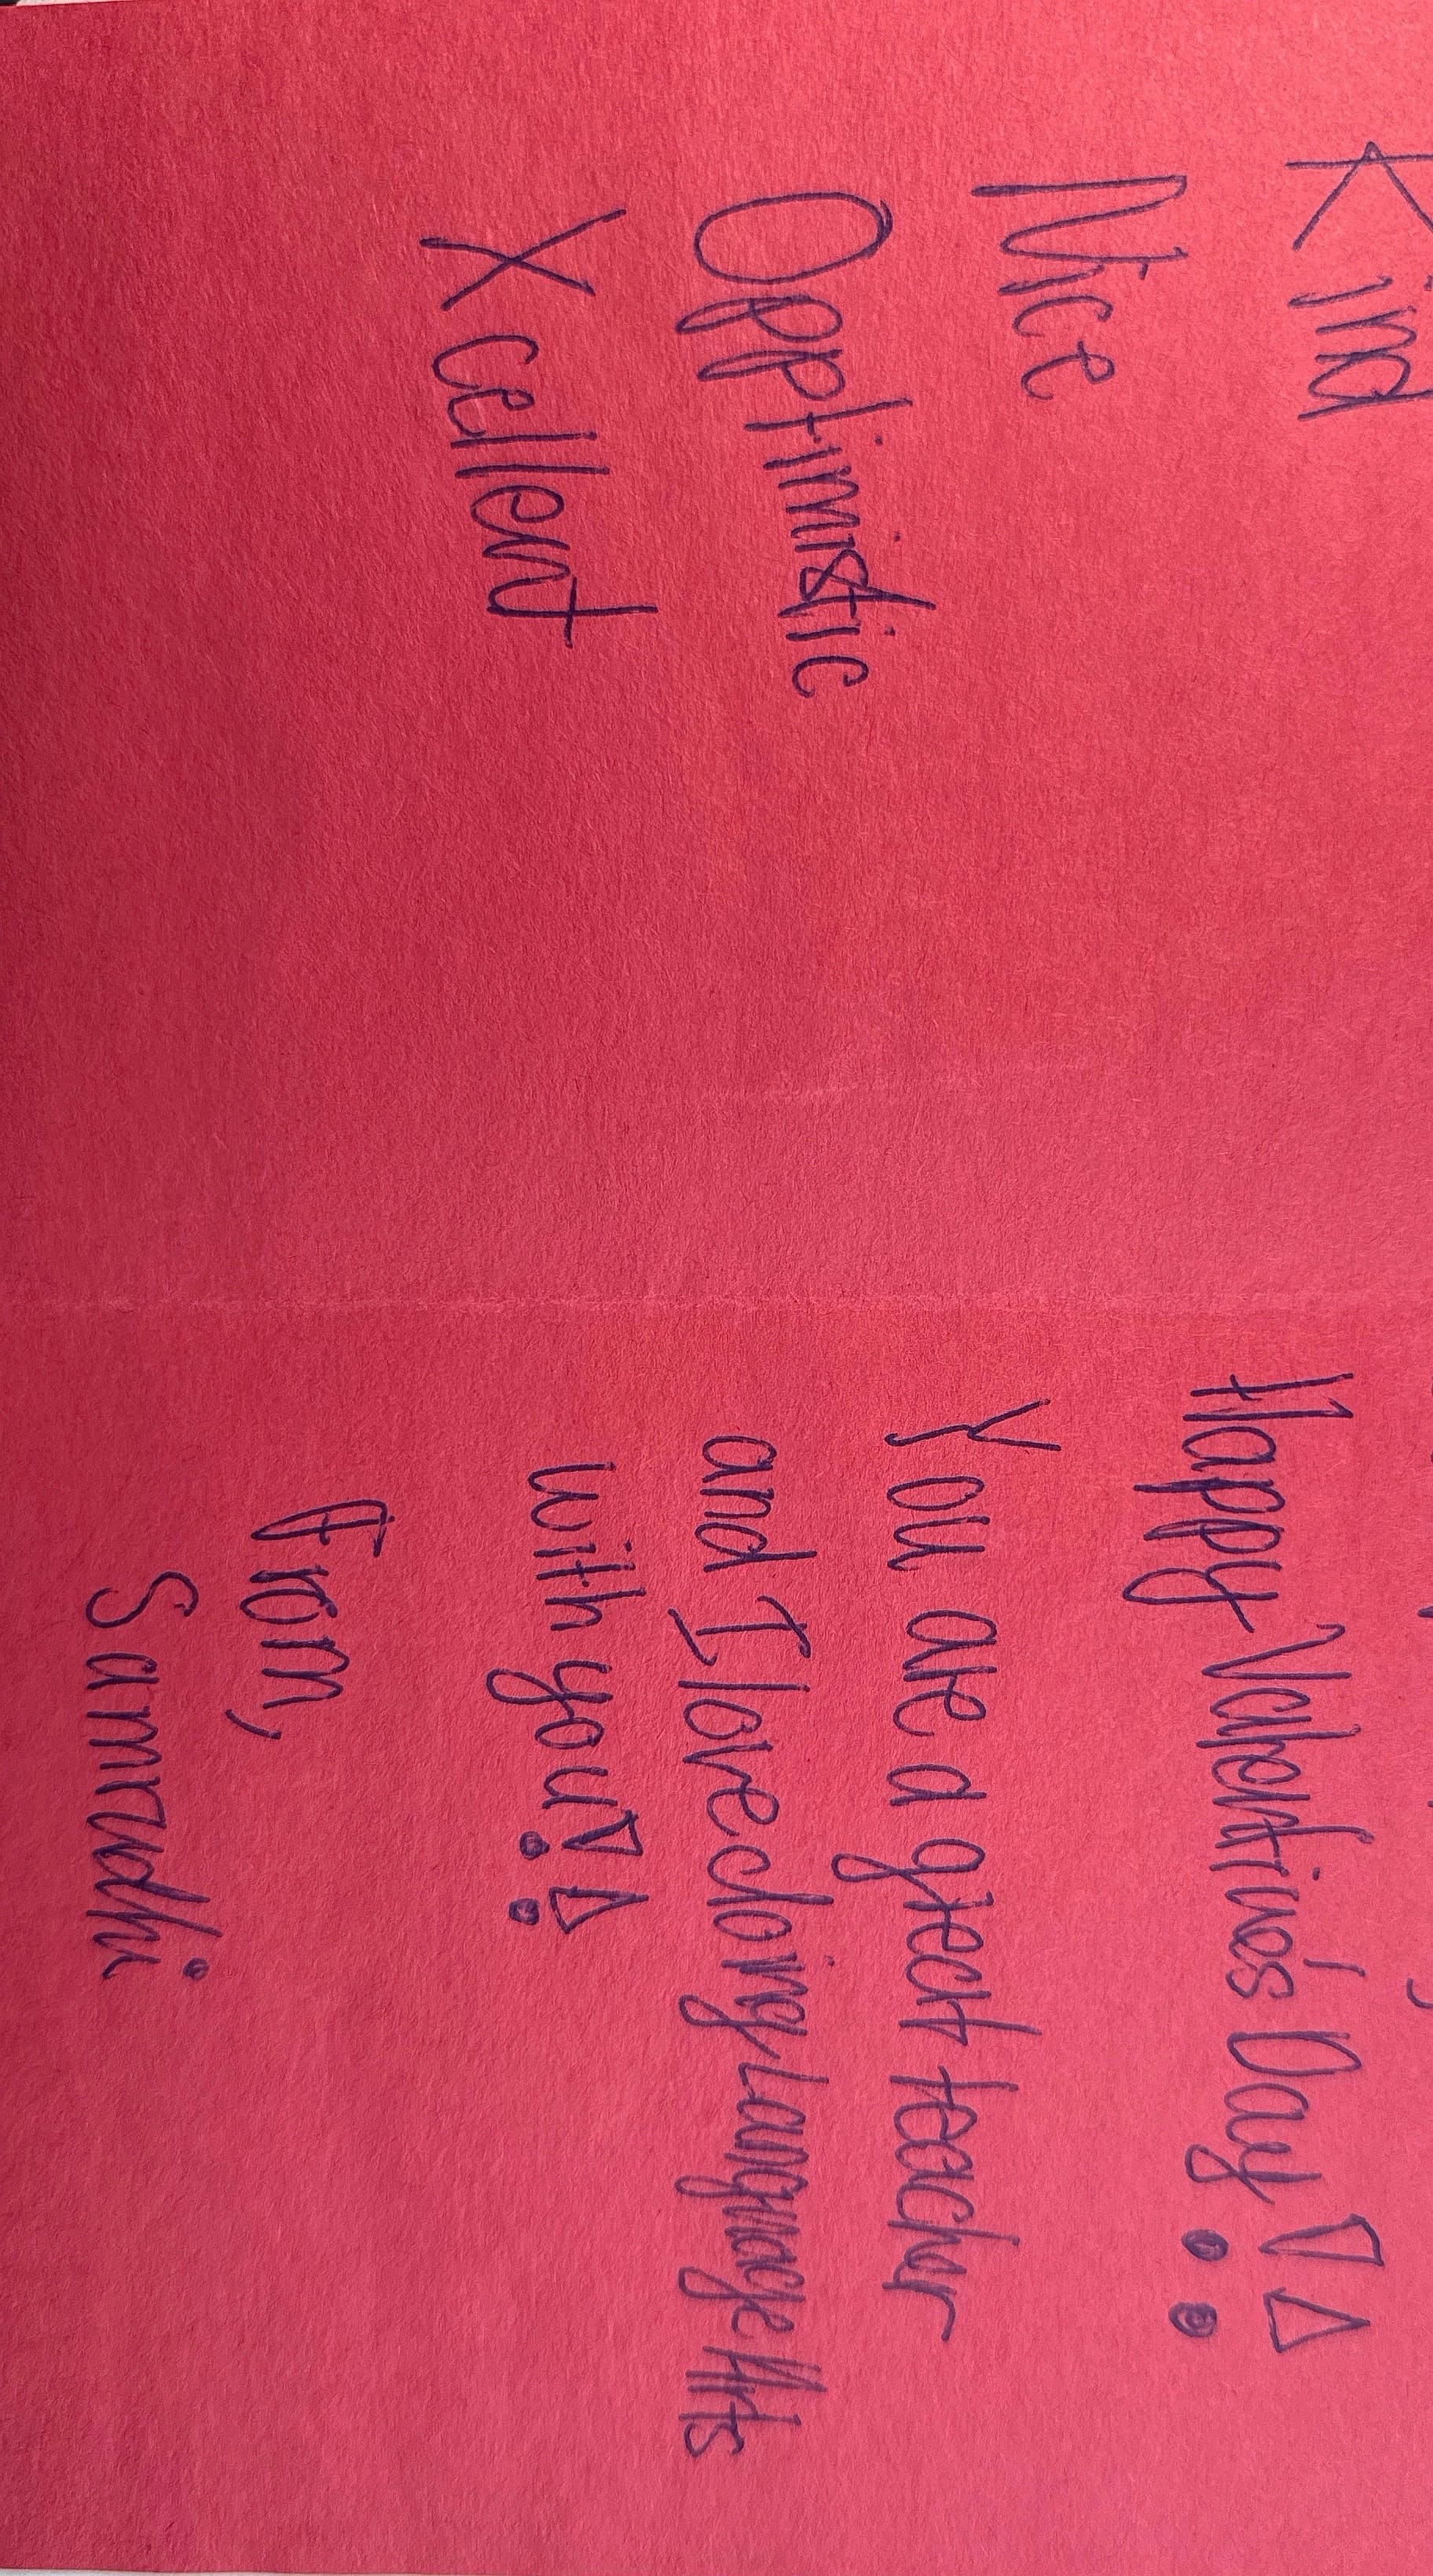 Kind
Nice
Opptimistic
Xcellent
Happy Valentine's Day!!
You are a great teacher
and I love doing Language Arts
with you!!
From,
Samrudhi